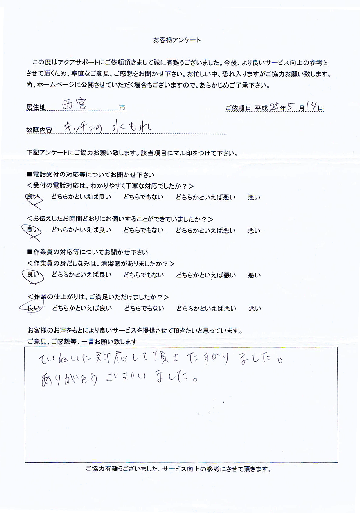 お客様アンケート
この度はアクアサポートにご依頼頂きまして誠に有難うございました。今後、より良いサービス向上の参考と
させて頂くため、率直なご意見、ご感想をお聞かせ下さい。お忙しい中、恐れ入りますがご協力お願い致します。
尚、ホームページに公開させていただく場合もございますので、あらかじめご了承下さい。
居住地 西宮 市 ご依頼日 平成 年 5月
依頼内容 キッチンの水もれ
下記アンケートにご協力お願い致します。該当項目にマル印をつけて下さい。
■電話受付の対応等についてお聞かせ下さい
<受付の電話対応は、わかりやすく丁寧な対応でしたか?>
良い どちらかといえば良い どちらでもない どちらかといえば悪い 悪い
<お伝えしたお時間どおりにお伺いすることができていましたか?>
良い どちらかといえば良い どちらでもない どちらかといえば悪い 悪い
■作業員の対応等についてお聞かせ下さい
<作業員の身だしなみは、清潔感がありましたか?>
良い どちらかといえば良い どちらでもない どちらかといえば悪い 悪い
<作業の仕上がりは、ご満足いただけましたか?>
良い どちらかといえば良い どちらでもない どちらかといえば悪い 悪い
お客様のお声をもとにより良いサービスを提供させて頂きたいと思っています。
ご意見、ご感想等、一言お願い致します
ていねいに対応して頂きたすかりました。
ありがとうございました。
ご協力有難うございました。サービス向上の参考にさせて頂きます。